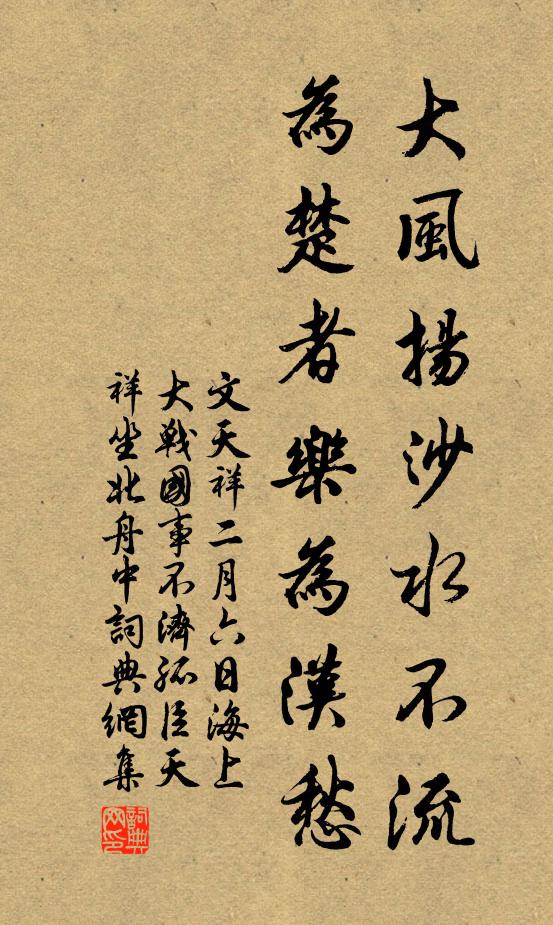 大風揚沙水不流
為楚者樂為漢愁
文天祥二月六日海上
大戰國事不濟孤臣天
祥坐北舟中詞典網集
詞典网印